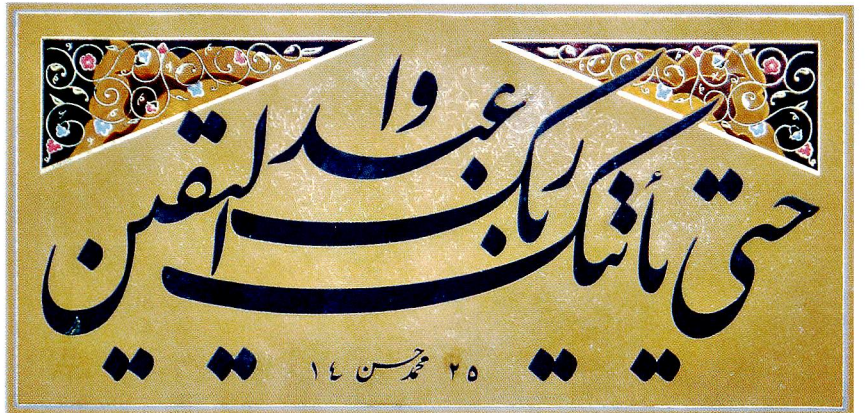 واعبد ربك حتى يأتيك اليقين
١٤ محمد حسن ٢٥